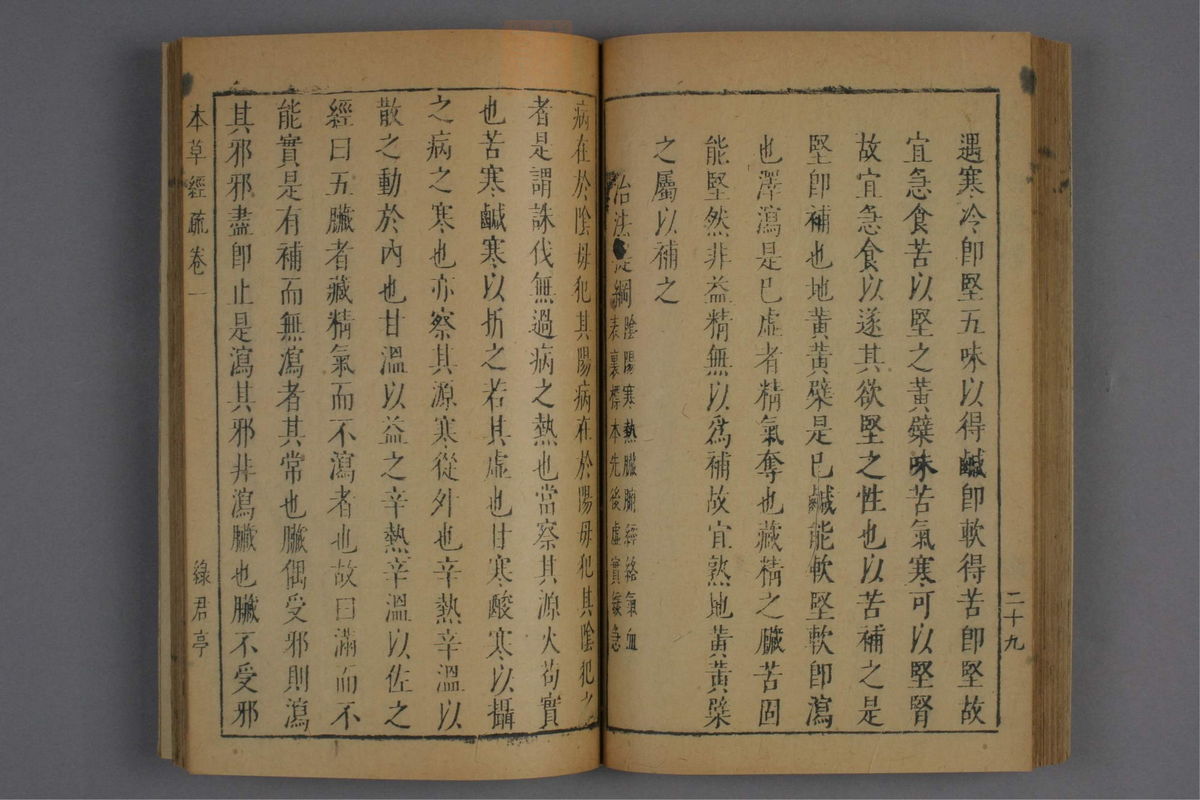 二十九
遇寒冷卽堅五味以得鹹卽軟得苦卽堅故
宜急食苦以堅之黃檗味苦氣寒可以堅腎
故宜急食以遂其欲堅之性也以苦補之是
堅卽補也地黃黃檗是已鹹能軟堅軟卽瀉
也澤瀉是已虛者精氣奪也藏精之臟苦固
能堅然非益精無以爲補故宜熟地黃黃檗
之屬以補之
治法綱
陰陽寒熱臟腑經絡氣血
表裏標本先後虛實緩急
病在於陰毋犯其陽病在於陽毋犯其陰犯之
者是謂誅伐無過病之熱也當察其源火苟實
也苦寒鹹寒以折之若其虛也甘寒酸寒以攝
之病之寒也亦察其源寒從外也辛熱辛溫以
散之動於內也甘溫以益之辛熱辛溫以佐之
經曰五臟者藏精氣而不瀉者也故曰滿而不
能實是有補而無瀉者其常也臟偶受邪則瀉
其邪邪盡卽止是瀉其邪非瀉臟也臟不受邪
本草經疏 卷一
綠君亭